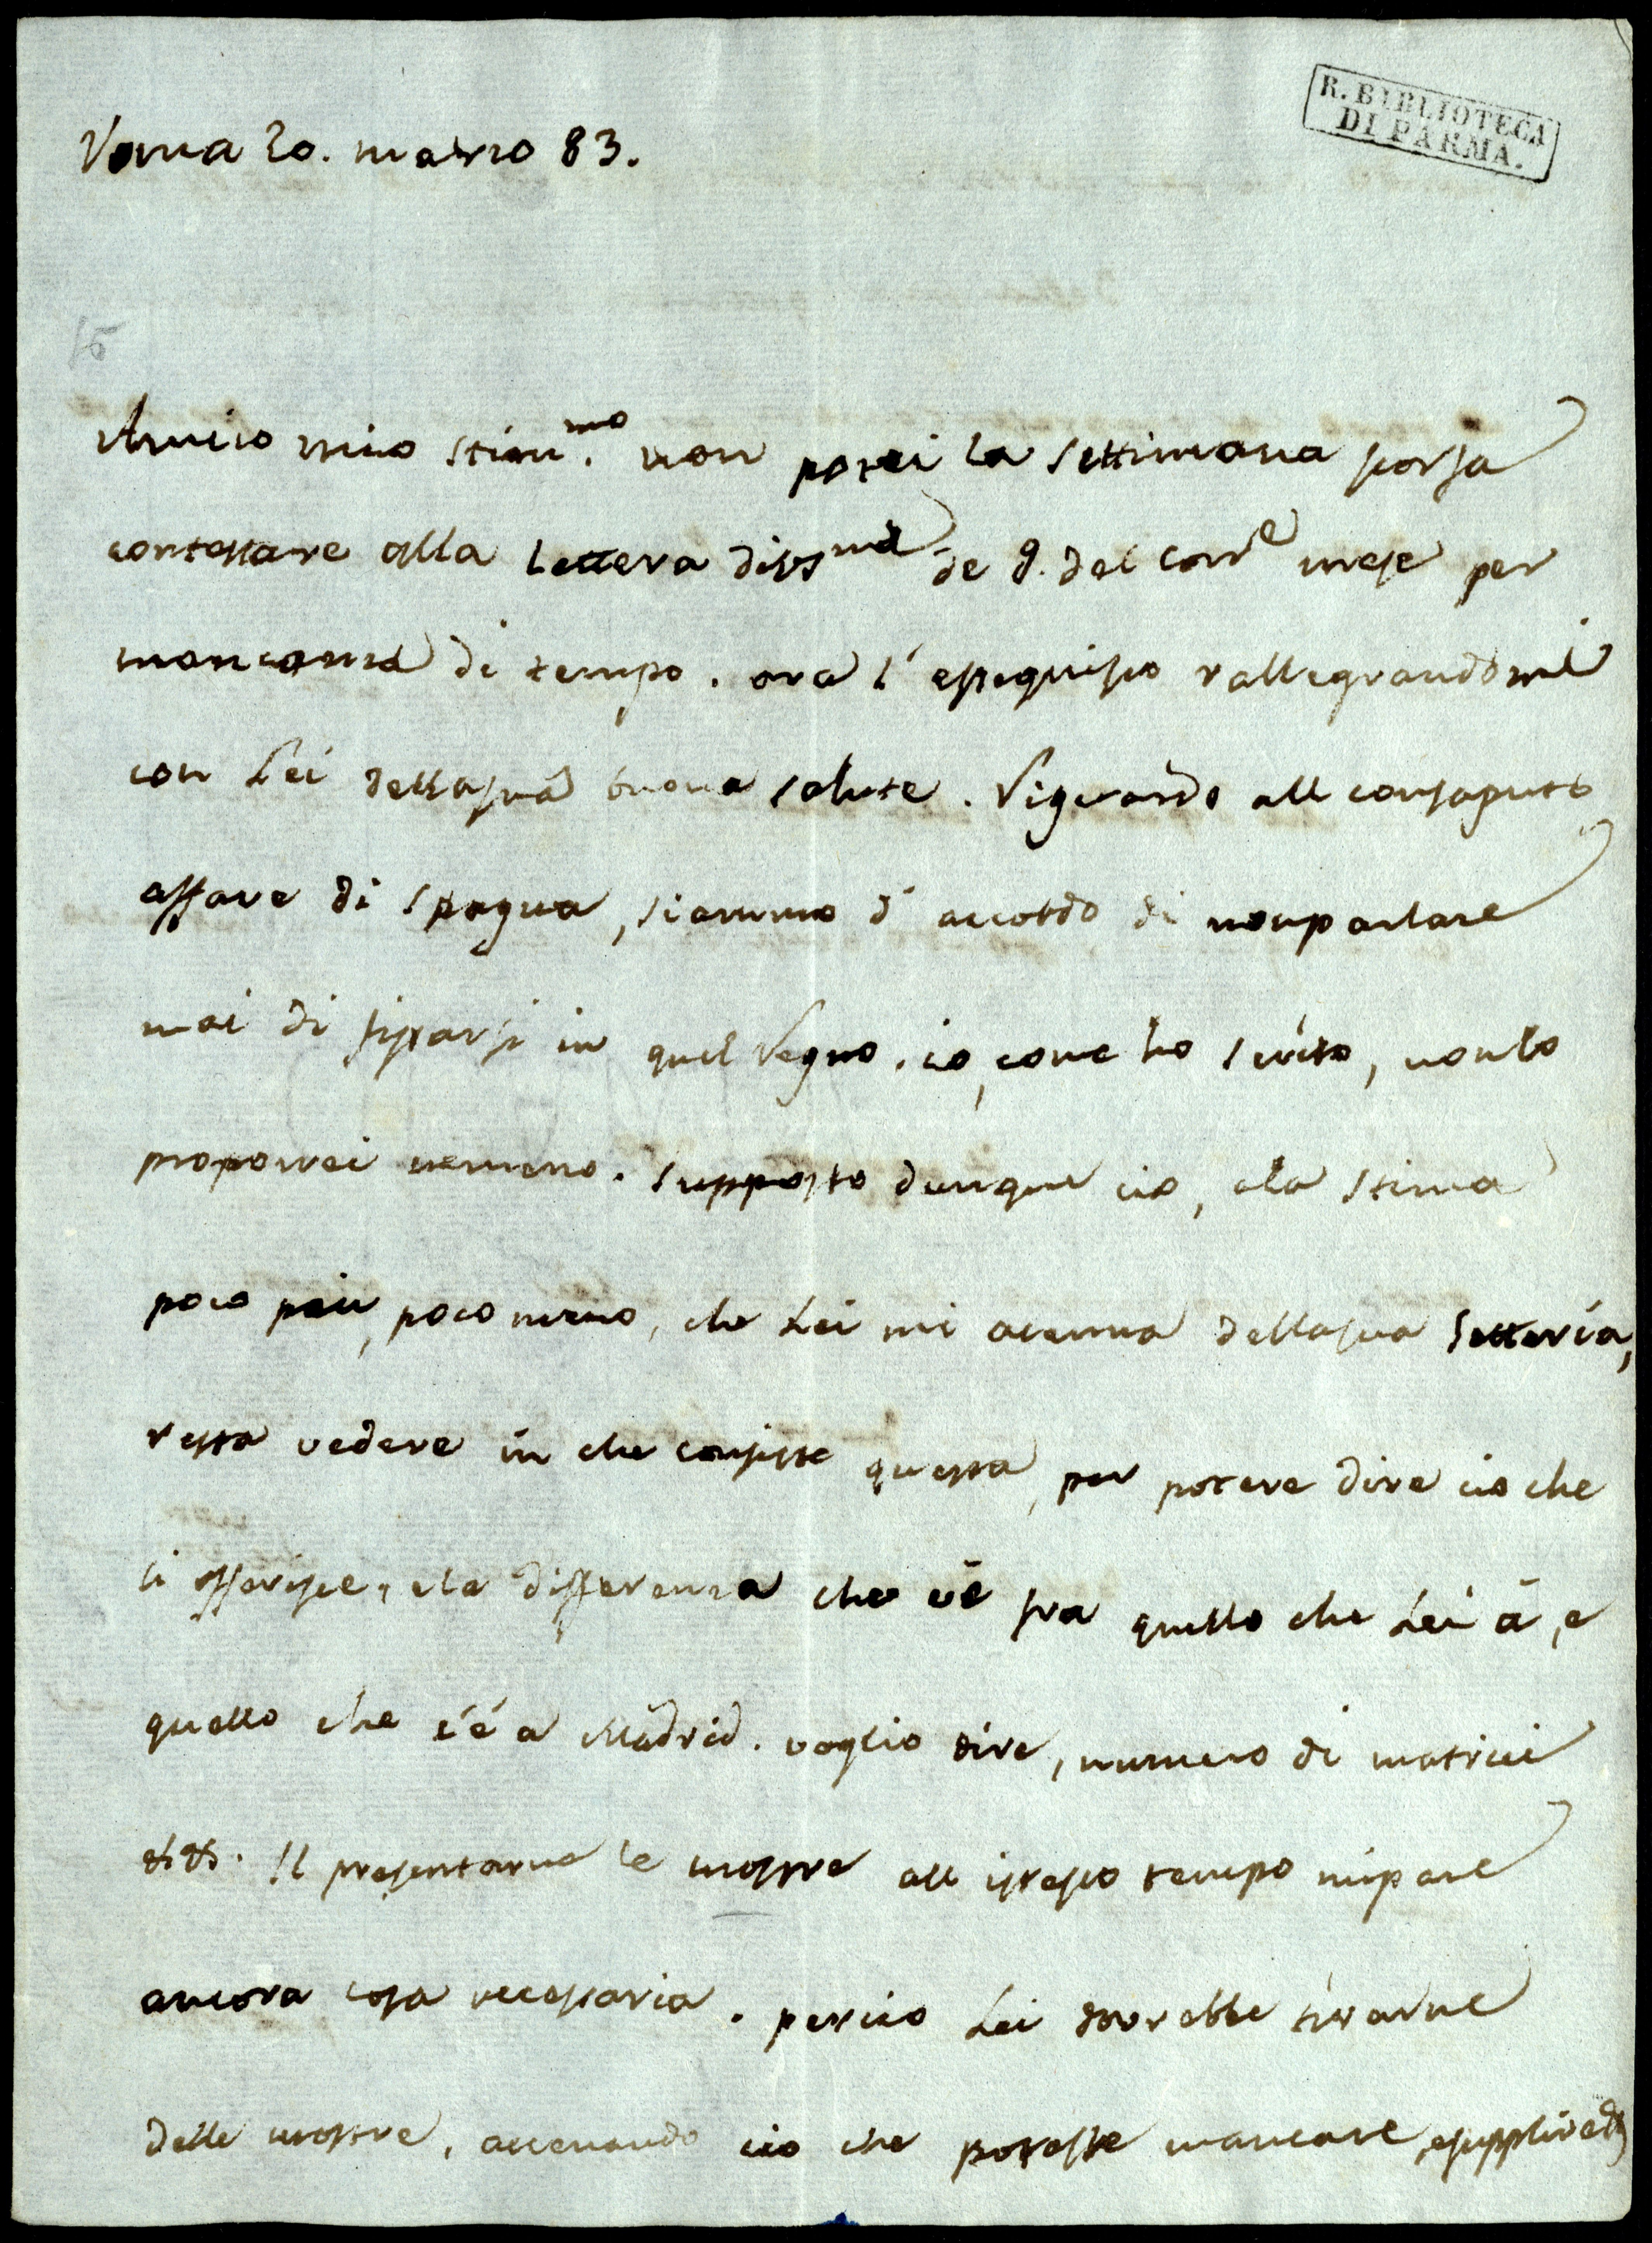 R. BIBLIOTECA
DI PARMA.
Roma 20. marzo 83.
15
Amico mio stim.mo non potei la settimana scorsa
contestare alla lettera de 9. del corre mese per
mancanza di tempo. ora l'esseguisco rallegrandomi
con Lei dellasua buona salute. Riguardo all consaputo
affare di Spagna, siammo d'accordo di nonparlare
mai di fissarsi in quel Regno. io, come ho scrito, nonlo
proporrei nemeno. supposto dunque cio, ela stima
poco piu, poco meno, che Lei mi acenna dellasua Letteria,
resta vedere in che consiste questa, per potere dire cio che
si offerisce, ela differenza che vè fra quello che Lei à, e
quello che c'é a Madrid. voglio dire, numero di matrici
&&. Il presentarne le mostre all istesso tempo mipare
ancora cosa necessaria. percio Lei dovrebbe tirarne
delle mostre, accenando cio che potesse mancare, esupplire &